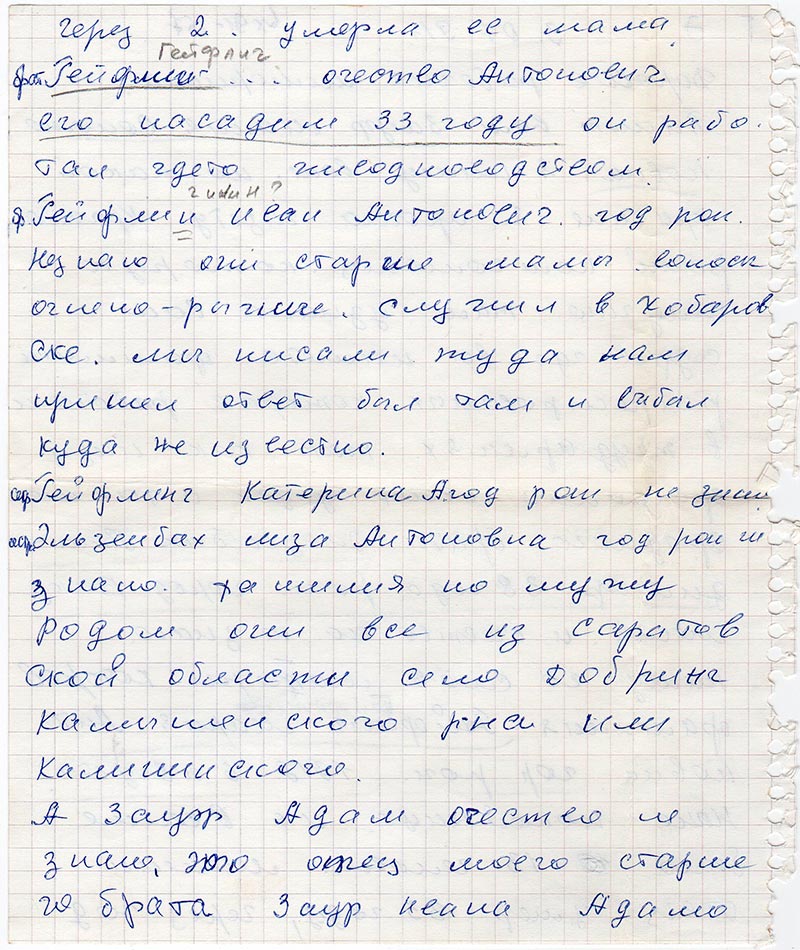 через 2. умерла ее мама
Гейфлинг
брат Гейфлинг ... очество Антонович
его насадили 33 году он рабо.
тал гдето животноводством
г или н?
бр Гейфлин Иван Антонович. год рож.
незнаю они старше мамы волосы
огнено-рыжие. служил в Хобаров
ске. мы писали туда нам
пришел ответ был там и выбал
куда же известно.
сес Гейфлинг Катерина А год рож не знаю
сестр Эльзенбах лиза Антоновна год рож не
знаю. фамилия по мужу
Родом они все из Саратов
ской области село Добринг
Камышенского рна или
Калишинского.
А Зауэр Адам очество не
знаю, это отец моего старше
го брата Зауэр Адамо